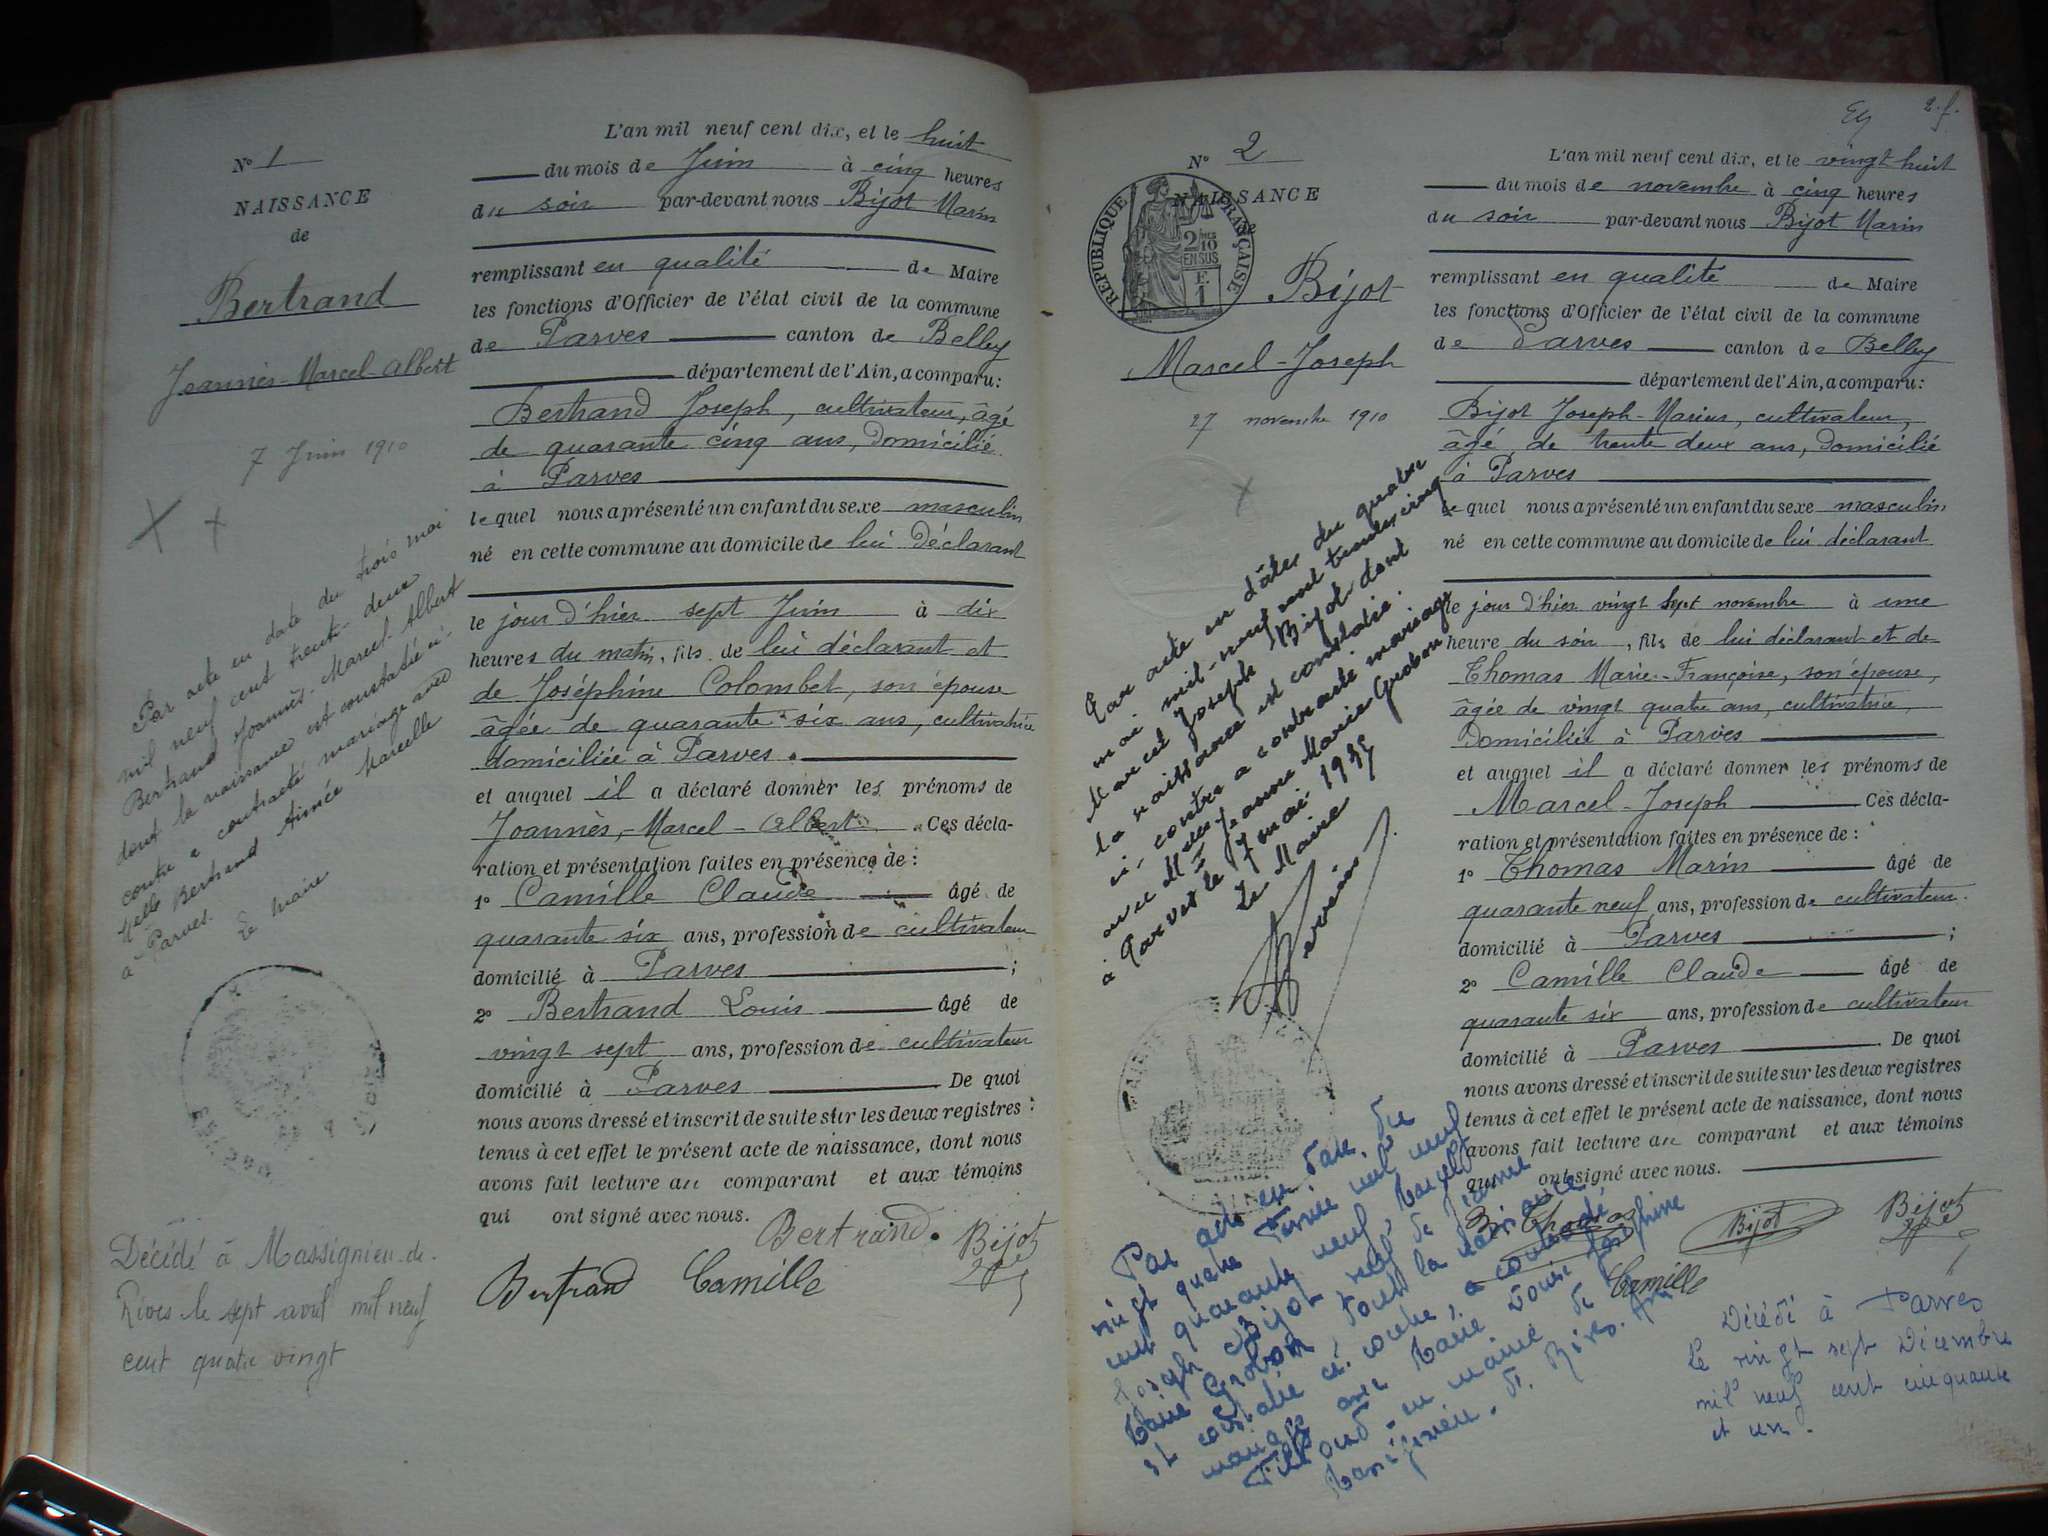 N° 1
NAISSANCE
de
Bertrand
Joannès-Marcel-Albert
7 Juin 1910
Par acte en date du trois mai
mil neuf cent trente-deux
Bertrand Joannès-Marcel-Albert
dont la naissance est constatée ci-
contre a contracté mariage avec
Melle Bertrand Aimée Marcelle
à Parves.
Le Maire
Décédé à Massignieu-de-
Rives le sept avril mil neuf
cent quatre vingt
L'an mil neuf cent dix, et le huit
du mois de Juin à cinq heures
du soir par-devant nous Bijot Marin
remplissant en qualité de Maire
les fonctions d'Officier de l'état civil de la commune
de Parves canton de Belley
département de l'Ain, a comparu:
Bertrand Joseph, cultivateur, âgé
de quarante cinq ans, domicilié
à Parves
lequel nous a présenté un enfant du sexe masculin
né en cette commune au domicile de lui déclarant
le jour d'hier sept Juin à dix
heures du matin, fils de lui déclarant et
de Joséphine Colombet, son épouse
âgée de quarante-six ans, cultivatrice
domiciliée à Parves.
et auquel il a déclaré donner les prénoms de
Joannès,-Marcel-Albert. Ces décla-
ration et présentation faites en présence de :
1° Camille Claude âgé de
quarante six ans, profession de cultivateur
domicilié à Parves ;
2° Bertrand Louis âgé de
vingt sept ans, profession de cultivateur
domicilié à Parves De quoi
nous avons dressé et inscrit de suite sur les deux registres
tenus à cet effet le présent acte de naissance, dont nous
avons fait lecture au comparant et aux témoins
qui ont signé avec nous.
Bertrand. Bijot
Bertrand Camille
2.f.
N° 2
NAISSANCE
de
RÉPUBLIQUE FRANÇAISE
2/10 EN SUS
F. 1
Bijot
Marcel-Joseph
27 novembre 1910
Par acte en dâtes du quatre
mai mil-neuf cent trente cinq
Marcel Joseph Bijot dont
la naissance est constatée
ci-contre a contracté mariage
avec Melle Jeanne Marie Grobon
à Parves le 7 mai 1935
Le Maire
Par acte en date du
vingt quatre Février mil neuf
cent quarante neuf, Marcel
Joseph Bijot veuf de Jeanne
Marie Grobon dont la naissance
est constatée ci-contre, a contracté
mariage avec Marie Louise Joséphine
en mairie de
Massignieu-de-Rives. Ain
L'an mil neuf cent dix, et le vingt huit
du mois de novembre à cinq heures
du soir par-devant nous Bijot Marin
remplissant en qualité de Maire
les fonctions d'Officier de l'état civil de la commune
de Parves canton de Belley
département de l'Ain, a comparu:
Bijot Joseph-Marius, cultivateur,
âgé de trente deux ans, domicilié
à Parves
lequel nous a présenté un enfant du sexe masculin
né en cette commune au domicile de lui déclarant
le jour d'hier vingt sept novembre à une
heure du soir, fils de lui déclarant et de
Thomas Marie-Françoise, son épouse,
âgée de vingt quatre ans, cultivatrice,
domiciliée à Parves
et auquel il a déclaré donner les prénoms de
Marcel-Joseph Ces décla-
ration et présentation faites en présence de :
1° Thomas Marin âgé de
quarante neuf ans, profession de cultivateur.
domicilié à Parves ;
2° Camille Claude âgé de
quarante six ans, profession de cultivateur
domicilié à Parves De quoi
nous avons dressé et inscrit de suite sur les deux registres
tenus à cet effet le présent acte de naissance, dont nous
avons fait lecture au comparant et aux témoins
qui ont signé avec nous.
Thomas Bijot Bijot
Camille
Décédé à Parves
le vingt sept Décembre
mil neuf cent cinquante
et un.